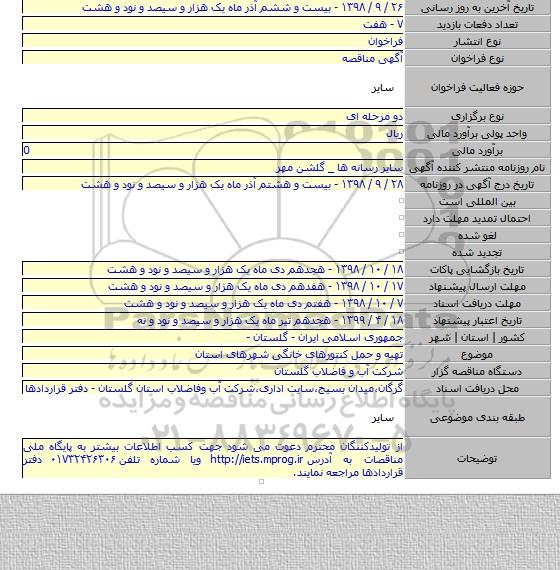 تاریخ آخرین به روز رسانی ۲۶ / ۹ / ۱۳۹۸ - بیست و ششم آذر ماه یک هزار و سیصد و نود و هشت
تعداد دفعات بازدید ۷ - هفت
نوع انتشار فراخوان
نوع فراخوان آگهی مناقصه
حوزه فعالیت فراخوان سایر
نوع برگزاری دو مرحله ای
واحد پولی برآورد مالی ریال
برآورد مالی 0
نام روزنامه منتشر کننده آگهی سایر رسانه ها _ گلشن مهر
تاریخ درج آگهی در روزنامه ۲۸ / ۹ / ۱۳۹۸ - بیست و هشتم آذر ماه یک هزار و سیصد و نود و هشت
بین المللی است
احتمال تمدید مهلت دارد
لغو شده
تجدید شده
تاریخ بازگشایی پاکات ۱۸ / ۱۰ / ۱۳۹۸ - هجدهم دی ماه یک هزار و سیصد و نود و هشت
مهلت ارسال پیشنهاد ۱۷ / ۱۰ / ۱۳۹۸ - هفدهم دی ماه یک هزار و سیصد و نود و هشت
مهلت دریافت اسناد ۷ / ۱۰ / ۱۳۹۸ - هفتم دی ماه یک هزار و سیصد و نود و هشت
تاریخ اعتبار پیشنهاد ۱۸ / ۴ / ۱۳۹۹ - هجدهم تیر ماه یک هزار و سیصد و نود و نه
کشور | استان | شهر جمهوری اسلامی ایران - گلستان -
موضوع تهیه و حمل کنتورهای خانگی شهرهای استان
دستگاه مناقصه گزار شرکت آب و فاضلاب گلستان
محل دریافت اسناد گرگان،میدان بسیج،سایت اداری،شرکت آب وفاضلاب استان گلستان - دفتر قراردادها
پایگاه اطلاع رسانی مناقصه و مزایده
طبقه بندی موضوعی سایر
۰۲۱-۸۸۳۴۹۶۷۰-۵
توضیحات از تولیدکنندگان محترم دعوت می شود جهت کسب اطلاعات بیشتر به پایگاه ملی
مناقصات به آدرس http://iets.mporg.ir ویا شماره تلفن ۰۱۷۳۲۴۲۶۳۰۶ دفتر
قراردادها مراجعه نمایند.